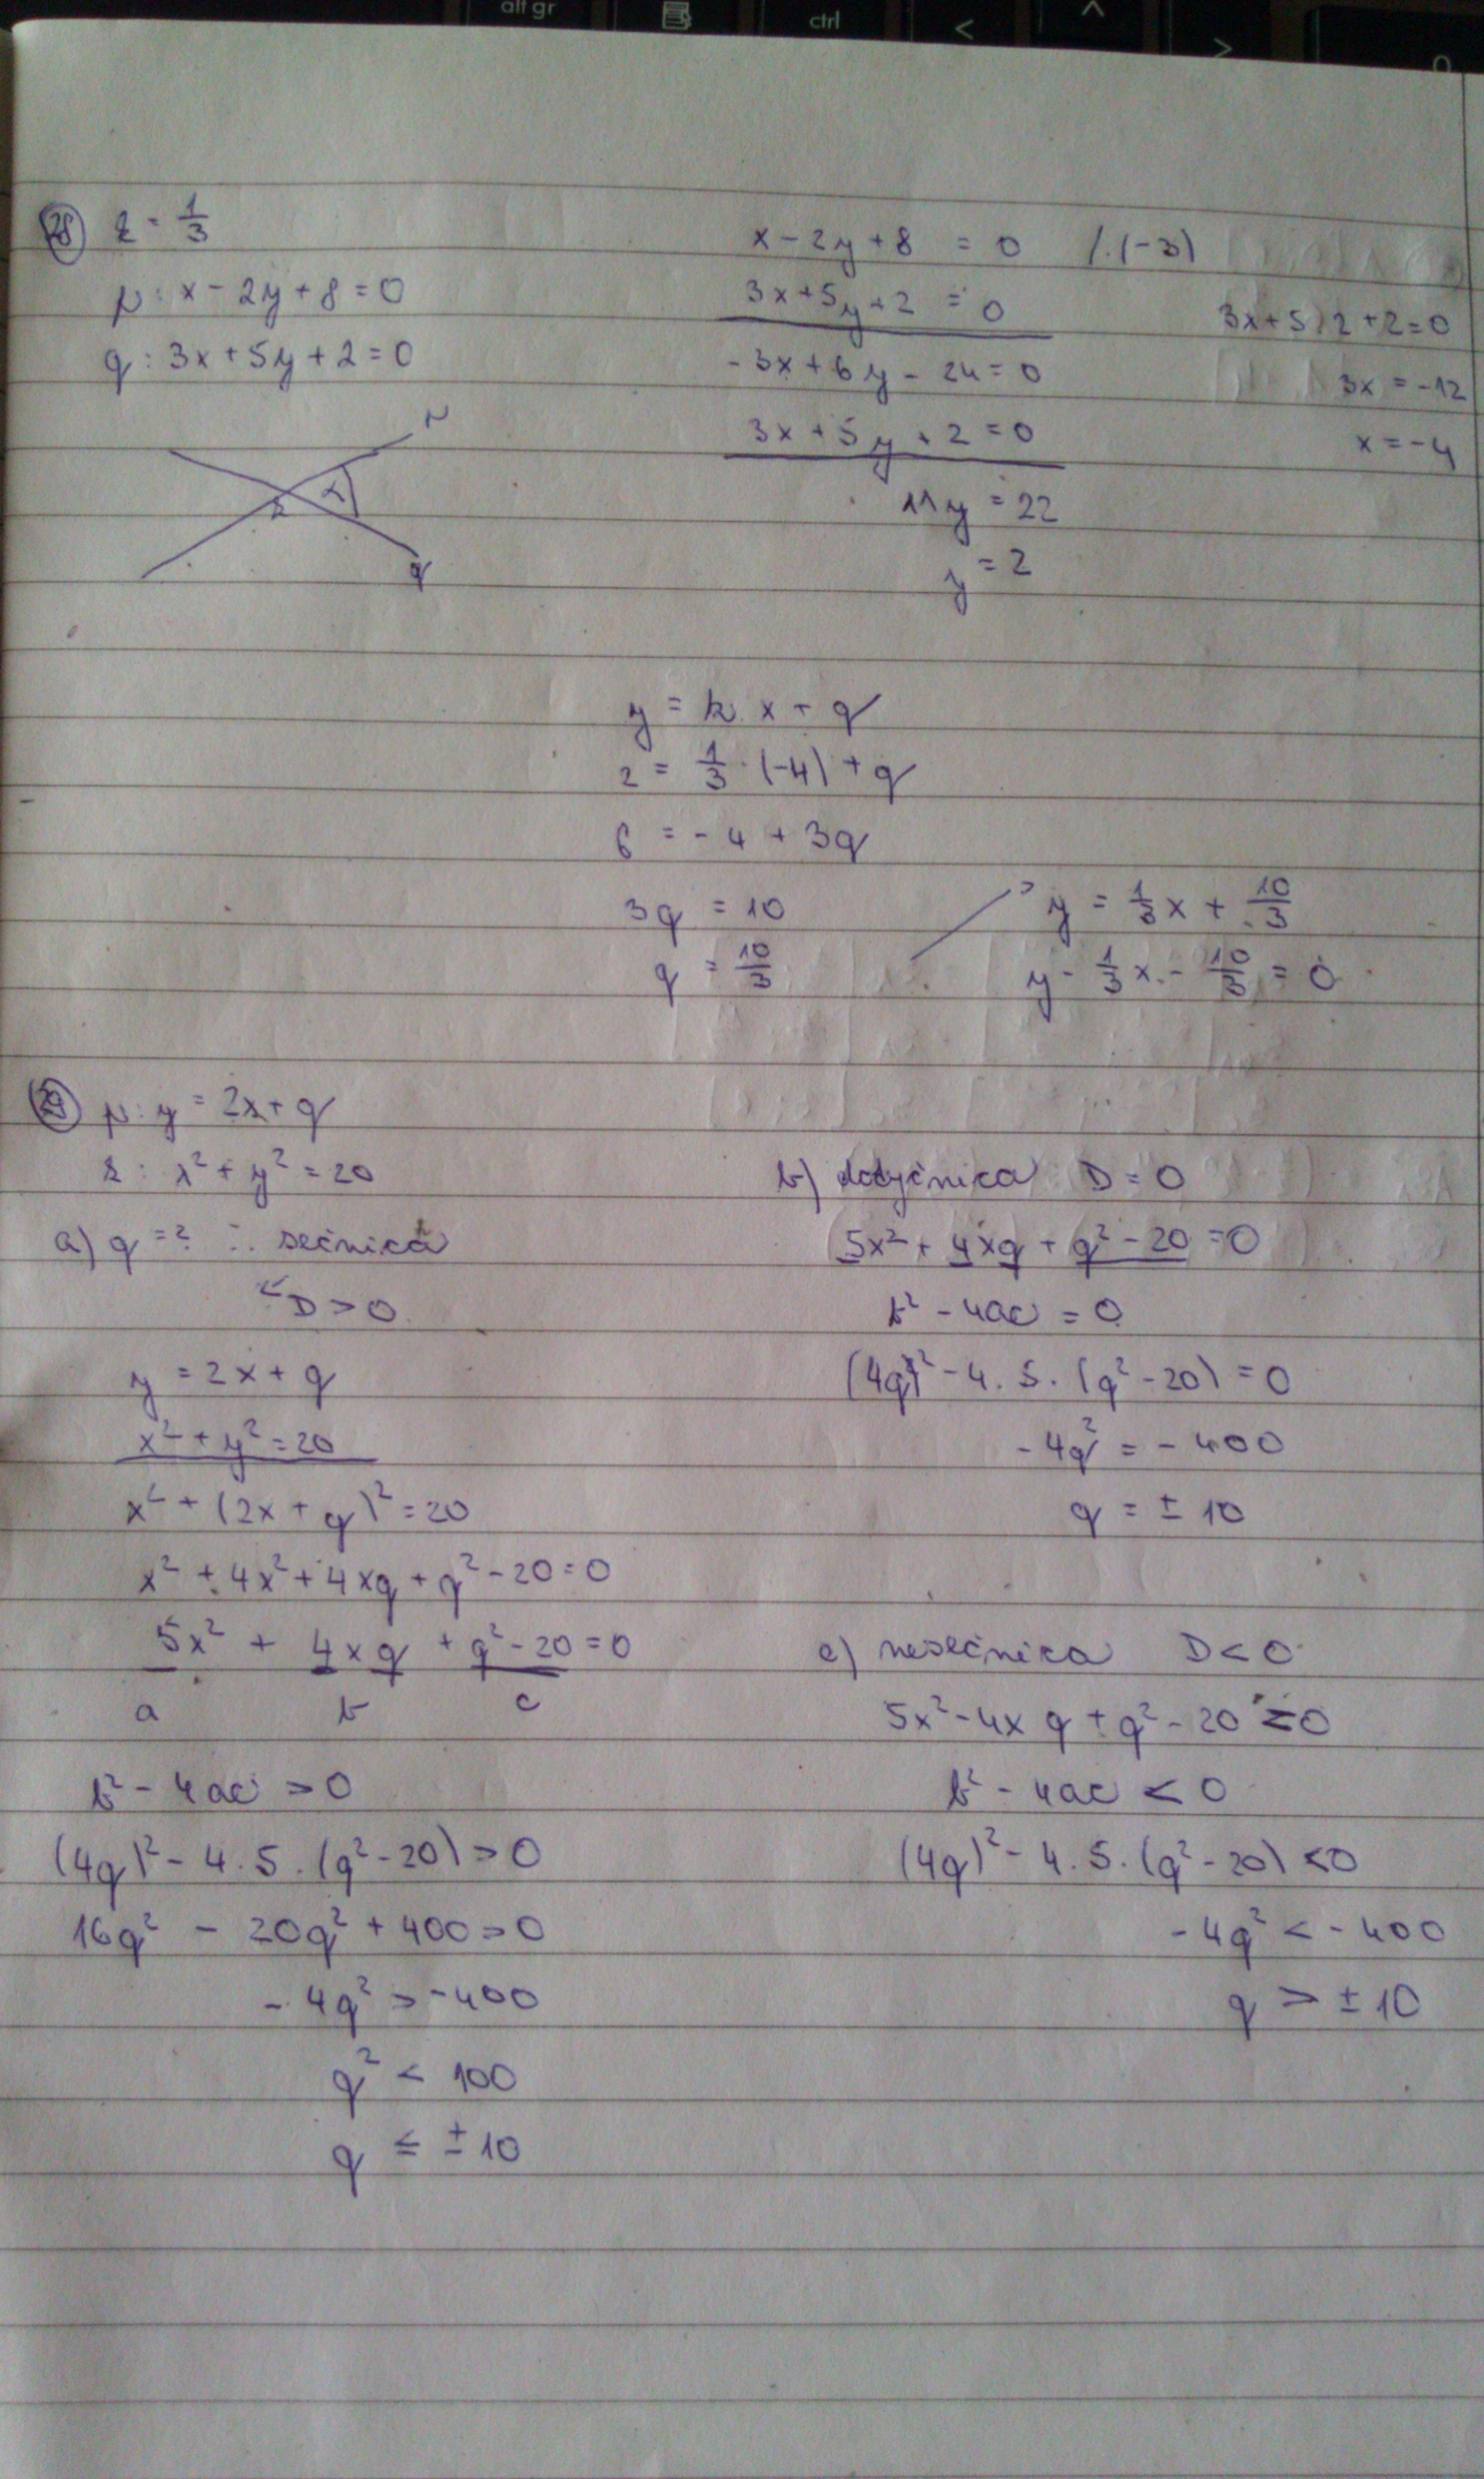 alt gr
ctrl
<
^
>
28) k = 1/3
p: x - 2y + 8 = 0
q: 3x + 5y + 2 = 0
q
x - 2y + 8 = 0 /.(-3)
3x + 5y + 2 = 0
-3x + 6y - 24 = 0
3x + 5y + 2 = 0
11y = 22
y = 2
3x + 5.2 + 2 = 0
3x = -12
x = -4
y = k.x + q
2 = 1/3 . (-4) + q
6 = -4 + 3q
3q = 10
q = 10/3
y = 1/3 x + 10/3
y - 1/3 x - 10/3 = 0
29) p: y = 2x + q
k: x² + y² = 20
a) q = ? : sečnica
D > 0
y = 2x + q
x² + y² = 20
x² + (2x + q)² = 20
x² + 4x² + 4xq + q² - 20 = 0
5x² + 4xq + q² - 20 = 0
a b c
b² - 4ac > 0
(4q)² - 4.5.(q² - 20) > 0
16q² - 20q² + 400 > 0
-4q² > -400
q² < 100
q < ± 10
b) dotyčnica D = 0
5x² + 4xq + q² - 20 = 0
b² - 4ac = 0
(4q)² - 4.5.(q² - 20) = 0
-4q² = -400
q = ± 10
c) nesečnica D < 0
5x² - 4xq + q² - 20 = 0
b² - 4ac < 0
(4q)² - 4.5.(q² - 20) < 0
-4q² < -400
q > ± 10